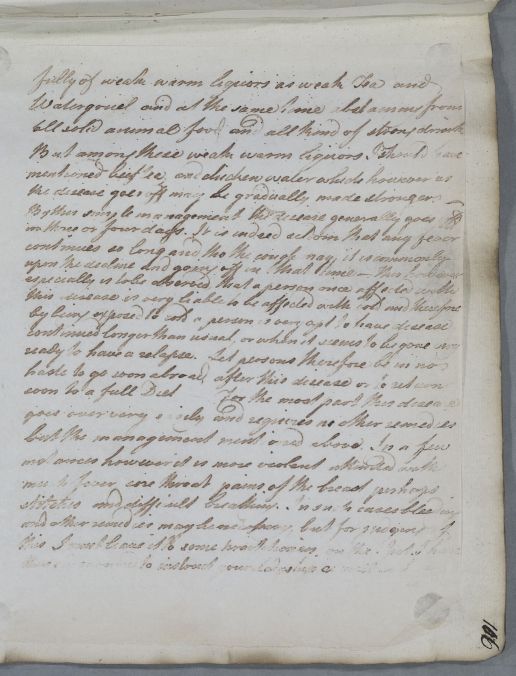 fully of weak warm liquors as weak Tea and
Watergruel and at the same time abstaining from
all solid animal food and all kind of strong drink
But among these weak warm liquors I should have
mentioned beef Tea and chicken water which however as
the disease goes off may be gradually made stronger
By this simple management the disease generally goes off
in three or four days. It is indeed seldom that any fever
continues so long and tho the cough may, it is commonly
upon the decline and going off in that time - This however
especially is to be observed that a person once affected with
this disease is very liable to be affected with cold and therefore
by being exposed to cold a person is very apt to have disease
continued longer than usual, or when it seems to be gone
ready to have a relapse. Let persons therefore be in no
haste to go soon abroad after this disease or to return
soon to a full Diet For the most part this disease
goes over very and requires no other remedies
but the management mentioned above. In a few
instances however it is more violent attended with
much fever sore throat pains of the breast perhaps
stitches and difficult breathing. In such cases bleeding
and other remedies may be necessary, but for
this I must leave it to some on the
to instruct your Ladyship